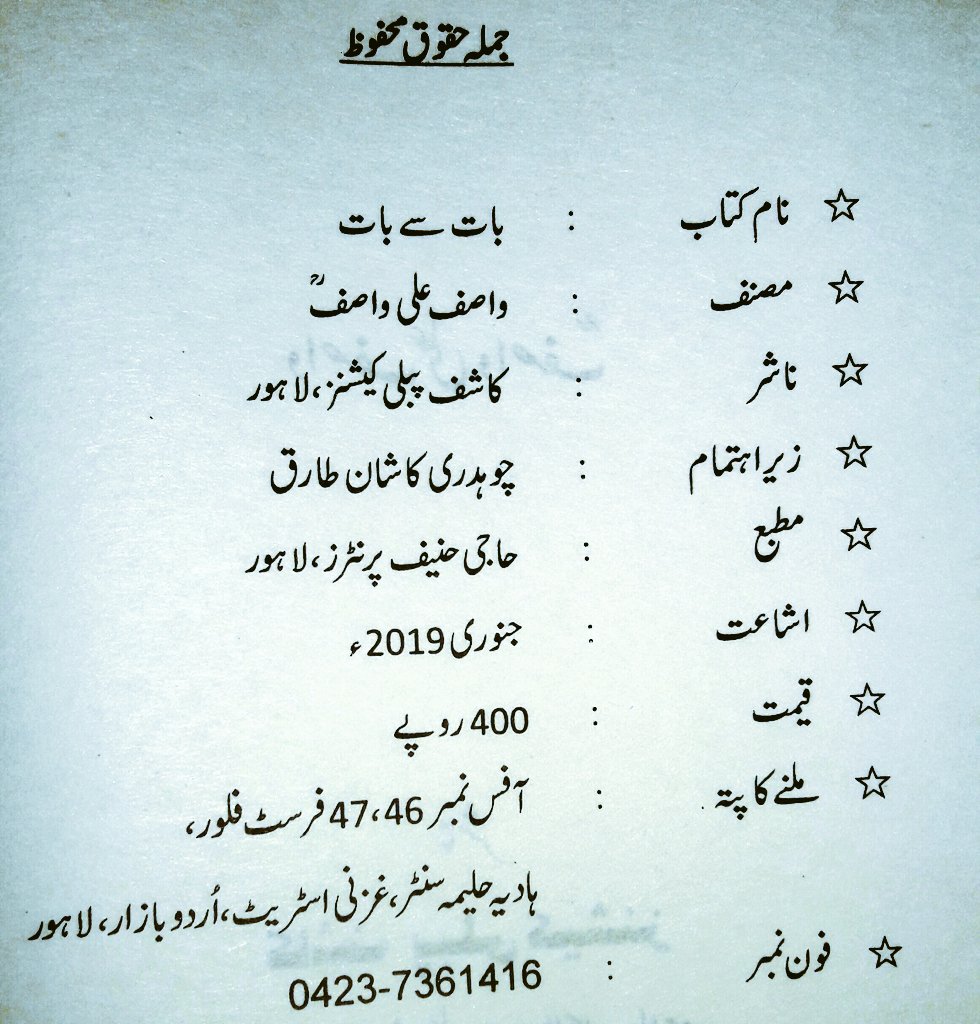 جملہ حقوق محفوظ
☆ نام کتاب : بات سے بات
☆ مصنف : واصف علی واصفؒ
☆ ناشر : کاشف پبلی کیشنز، لاہور
☆ زیر اہتمام : چوہدری کاشان طارق
☆ مطبع : حاجی حنیف پرنٹرز، لاہور
☆ اشاعت : جنوری 2019ء
☆ قیمت : 400 روپے
☆ ملنے کا پتہ : آفس نمبر 46،47 فرسٹ فلور،
ہادیہ حلیمہ سنٹر، غزنی اسٹریٹ، اُردو بازار، لاہور
☆ فون نمبر : 0423-7361416